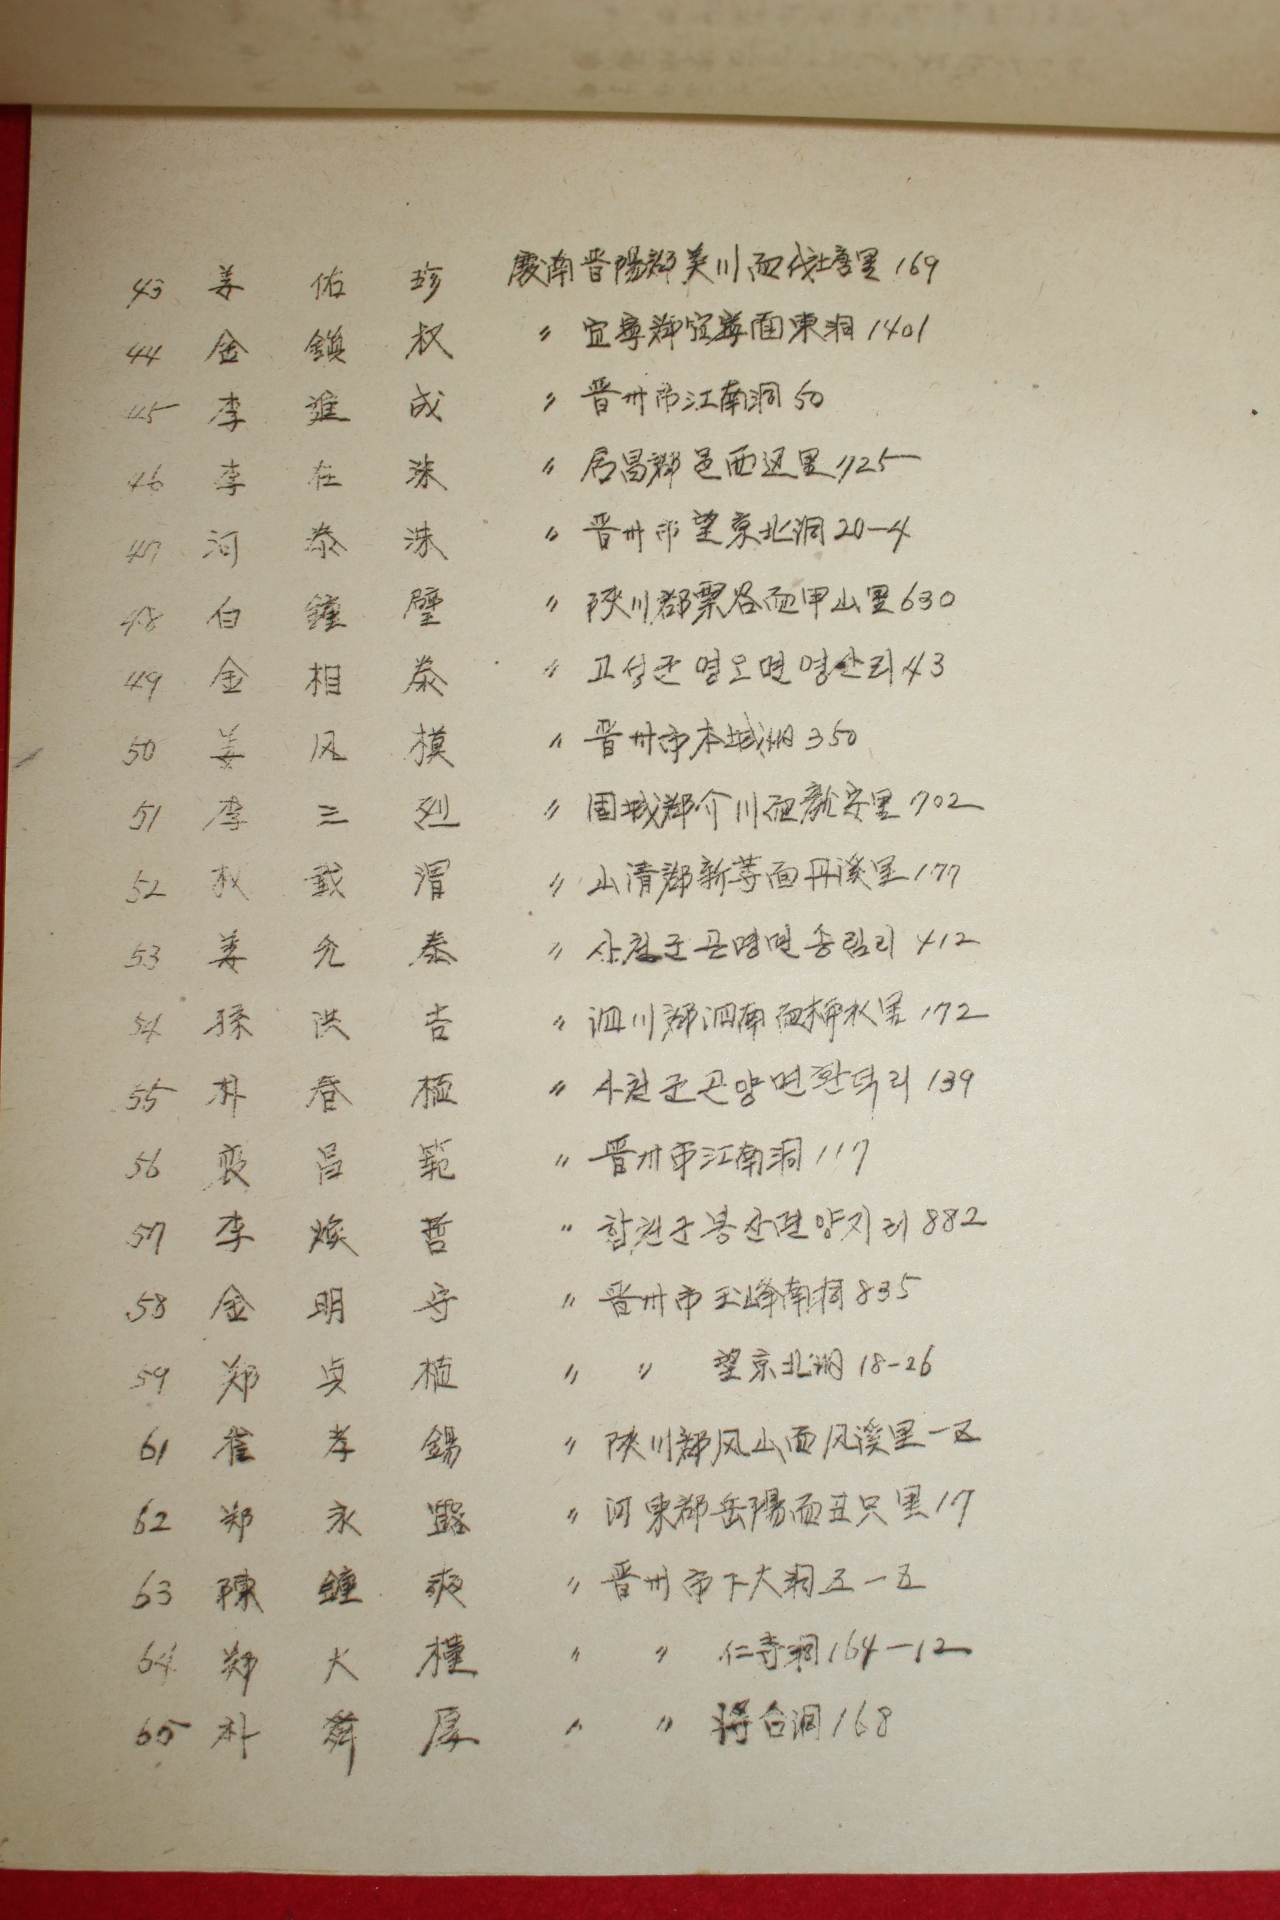 43 姜 佑 珍 慶南晋陽郡美川面伐社唐里169
44 金 鎮 权 〃 宜寧郡宜寧面東洞1401
45 李 進 成 〃 晋卅市江南洞50
46 李 在 洙 〃 居昌郡邑西辺里1125
47 河 泰 洙 〃 晋卅市望京北洞20-4
48 白 鐘 壁 〃 陜川郡栗谷面甲山里630
49 金 相 泰 〃 고성군영오면영산리43
50 姜 风 模 〃 晋卅市本城洞350
51 李 三 烈 〃 固城郡介川面龍安里702
52 权 載 渭 〃 山清郡新等面丹溪里177
53 姜 允 泰 〃 사천군곤명면송림리412
54 孫 洪 吉 〃 泗川郡泗南面 里172
55 朴 春 植 〃 사천군곤양면환덕리139
56 裵 昌 範 〃 晋卅市江南洞117
57 李 煥 哲 〃 합천군봉산면양지리882
58 金 明 守 〃 晋卅市玉峰南洞835
59 郑 貞 植 〃 〃 望京北洞18-26
61 崔 孝 錫 〃 陜川郡风山面风溪里一五
62 郑 永 〃 河東郡岳陽面丑只里17
63 陳 鐘 爽 〃 晋卅市下大洞五一五
64 郑 大 槿 〃 〃 仁寺洞164-12
65 朴 舞 厚 〃 〃 将台洞168